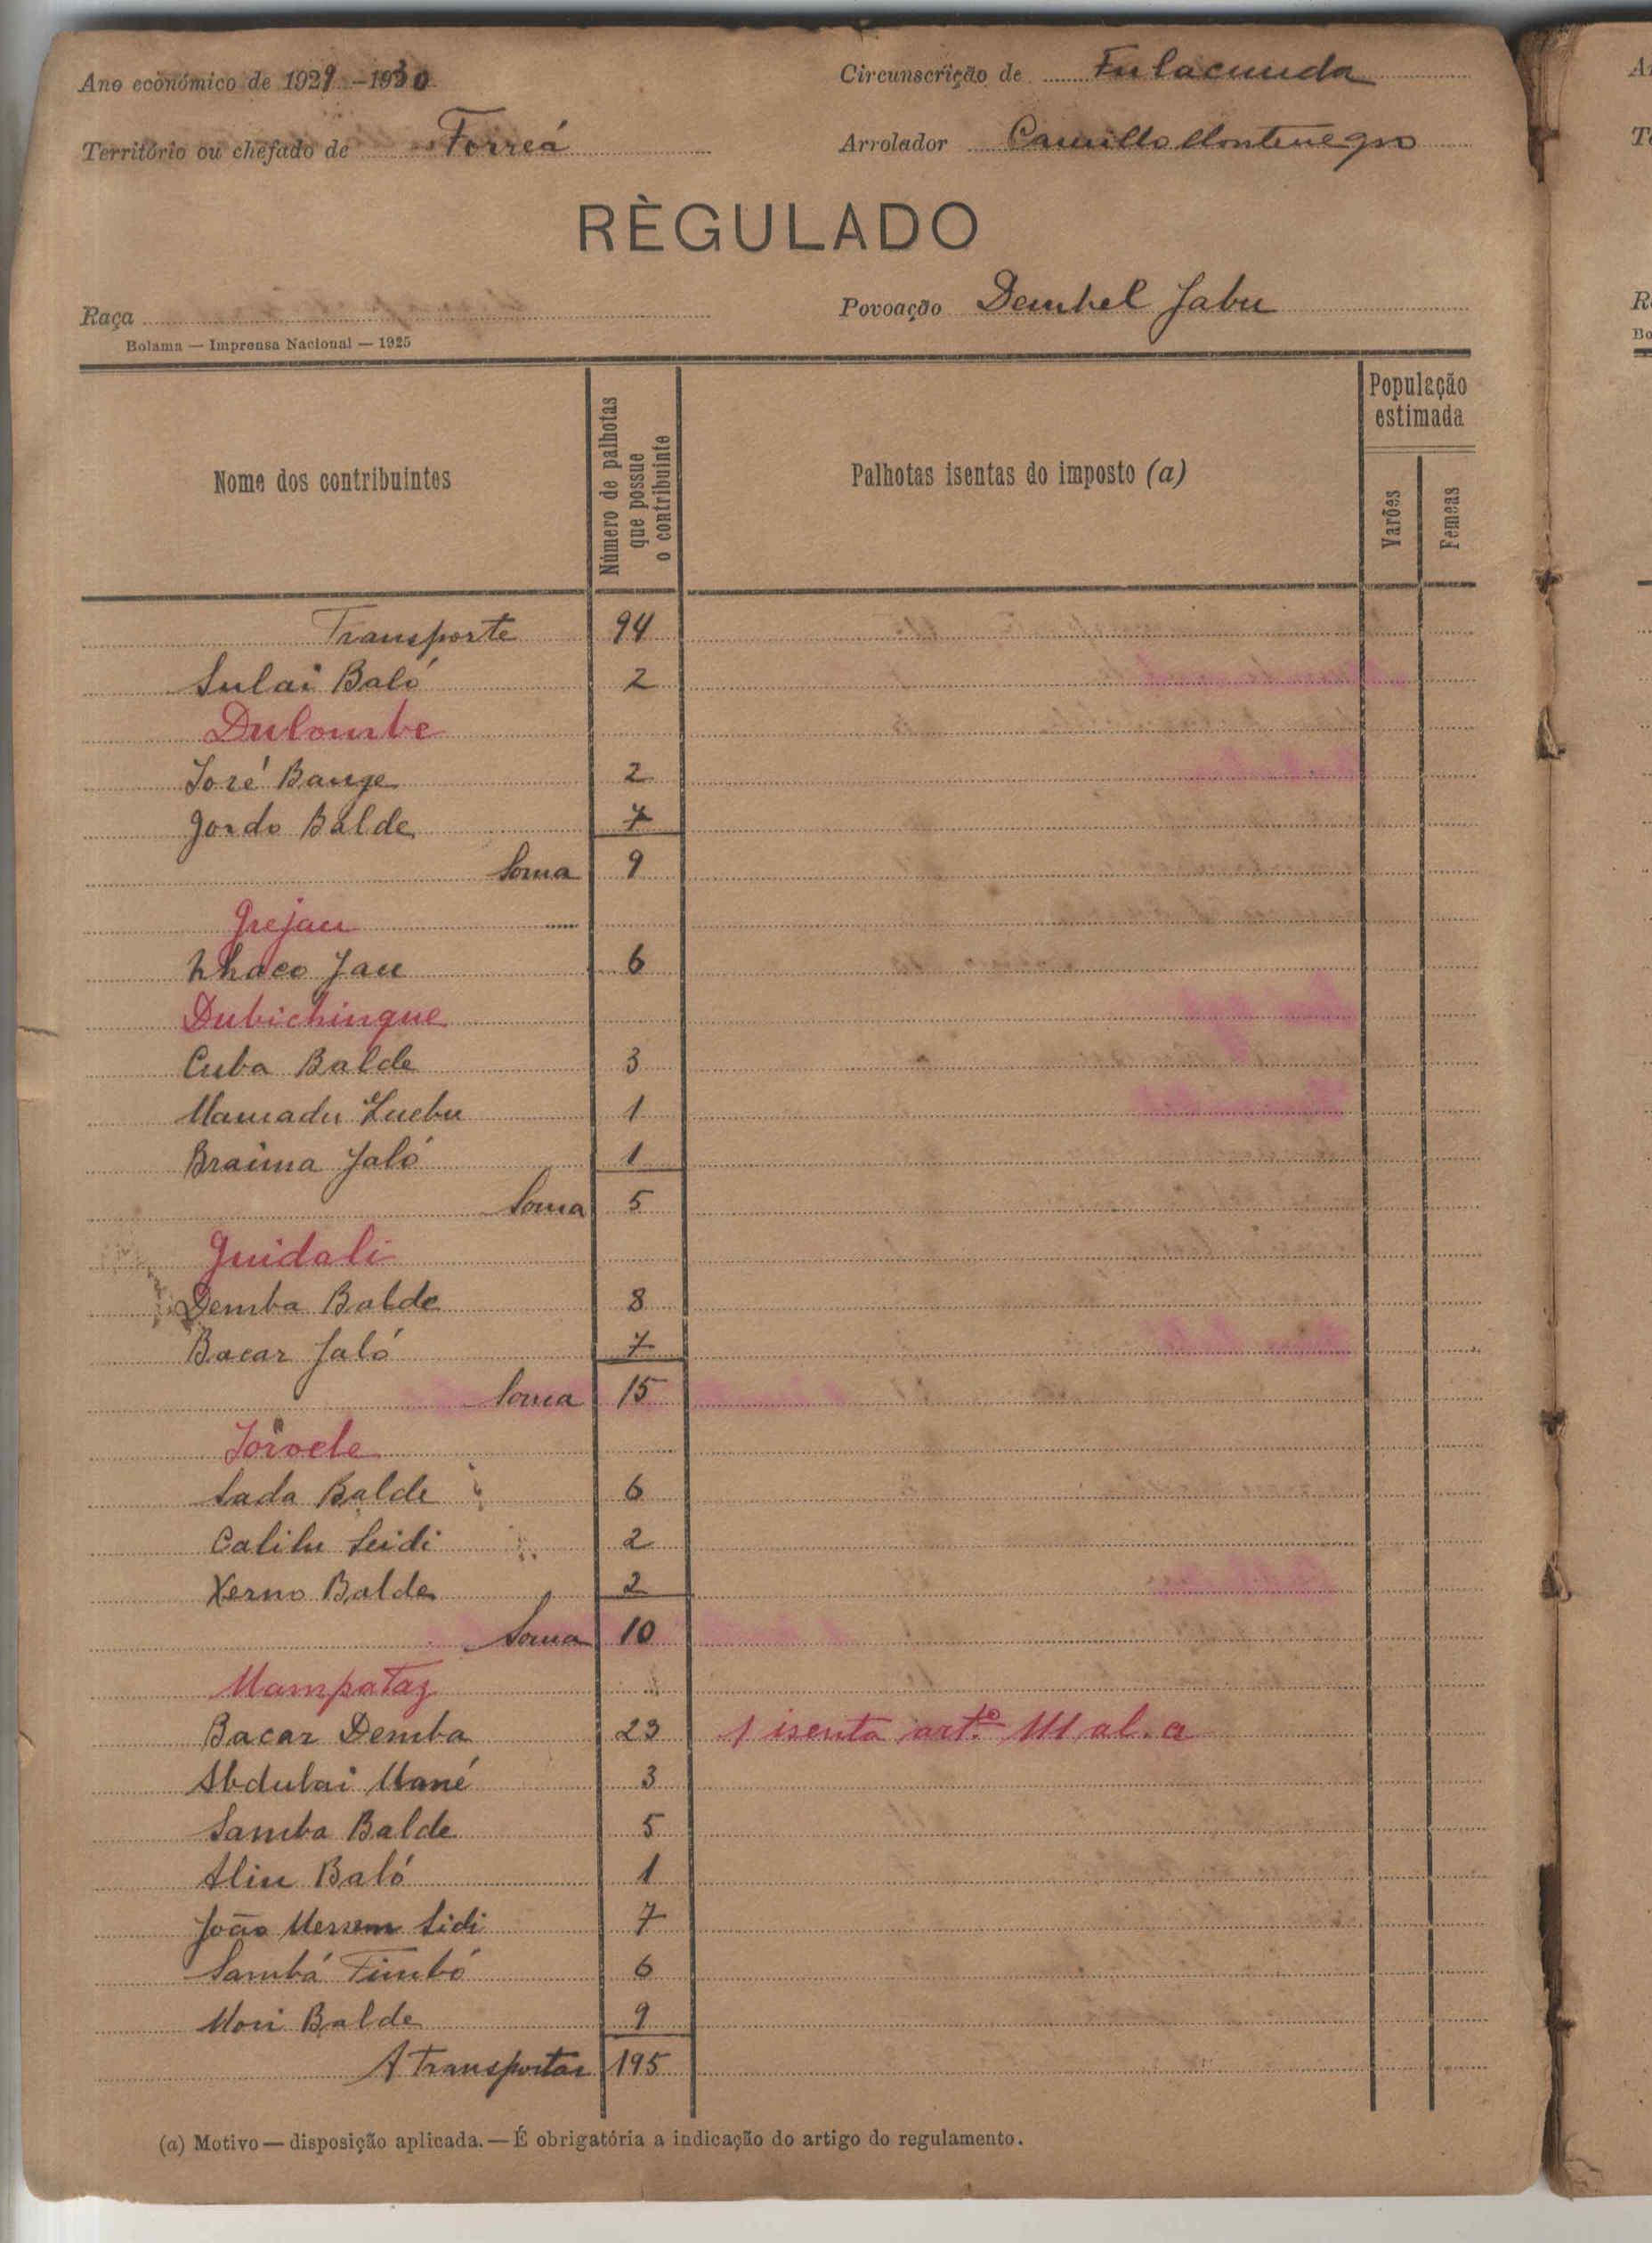 Ano económico de 1929-1930
Circunscrição de Fulacunda
Território ou chefado de Forreá
Arrolador Camillo Montenegro
RÈGULADO
Raça
Povoação Dembel Jabu
Bolama — Imprensa Nacional — 1925
Nome dos contribuintes
Número de palhotas que possue o contribuinte
Palhotas isentas do imposto (a)
População estimada
Varões
Femeas
Transporte 94
Sulai Baló 2
Dulombe
José Bange 2
Gordo Balde 7
Soma 9
Grejau
Jau 6
Dubichingue
Cuba Balde 3
Mamadu 1
Braima Jaló 1
Soma 5
Guidali
Demba Balde 8
Bacar Jaló 7
Soma 15
Joroele
Sada Balde 6
Calilu Seidi 2
Xerno Balde 2
Soma 10
Mampataz
Bacar Demba 23 1 isenta art.º 111 al. a
Abdulai Mané 3
Samba Balde 5
Aliu Baló 1
João Sidi 7
Sambá Timbó 6
Mori Balde 9
A Transportar 195
(a) Motivo — disposição aplicada. — É obrigatória a indicação do artigo do regulamento.